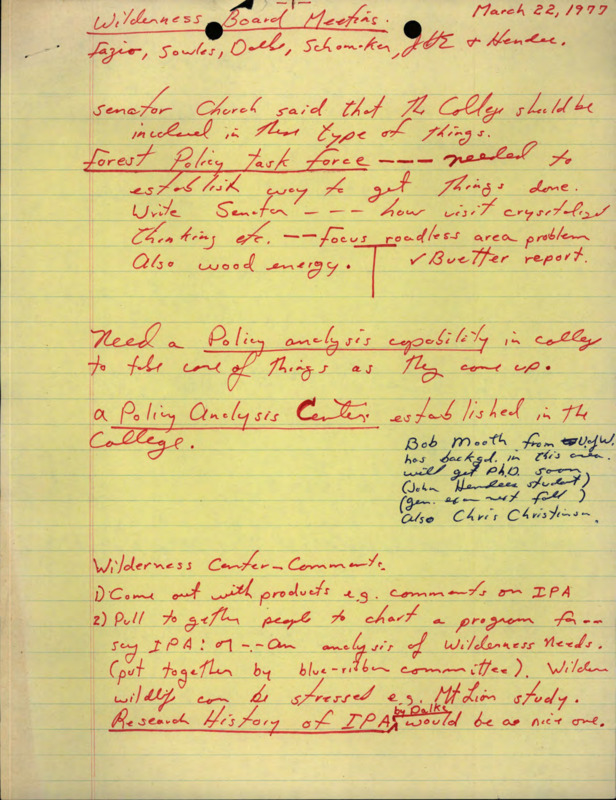 -1-
Wilderness Board Meeting.
March 22, 1977
Fazio, Sowles, Dalke, Schomaker, & Hendee.
Senator Church said that the College should be
involved in these type of things.
Forest Policy Task Force --- needed to
establish way to get things done.
Write Senator --- how visit crystalized
thinking etc. -- Focus roadless area problem
Also wood energy. ✓ Buetter report.
Need a Policy analysis capability in college
to take care of things as they come up.
a Policy Analysis Center established in the
College.
Bob Mooth from U of W.
has backgd. in this area.
will get Ph.D. soon
(John Hendees student)
(gen. exam next fall)
Also Chris Christianson.
Wilderness Center - Comments.
1) Come out with products e.g. comments on IPA
2) Pull together people to chart a program for --
say IPA: or -- An analysis of Wilderness Needs.
(put together by blue-ribbon committee). Wildern
wildlife can be stressed e.g. Mt Lion study.
Research History of IPA by Dalke would be a nice one.